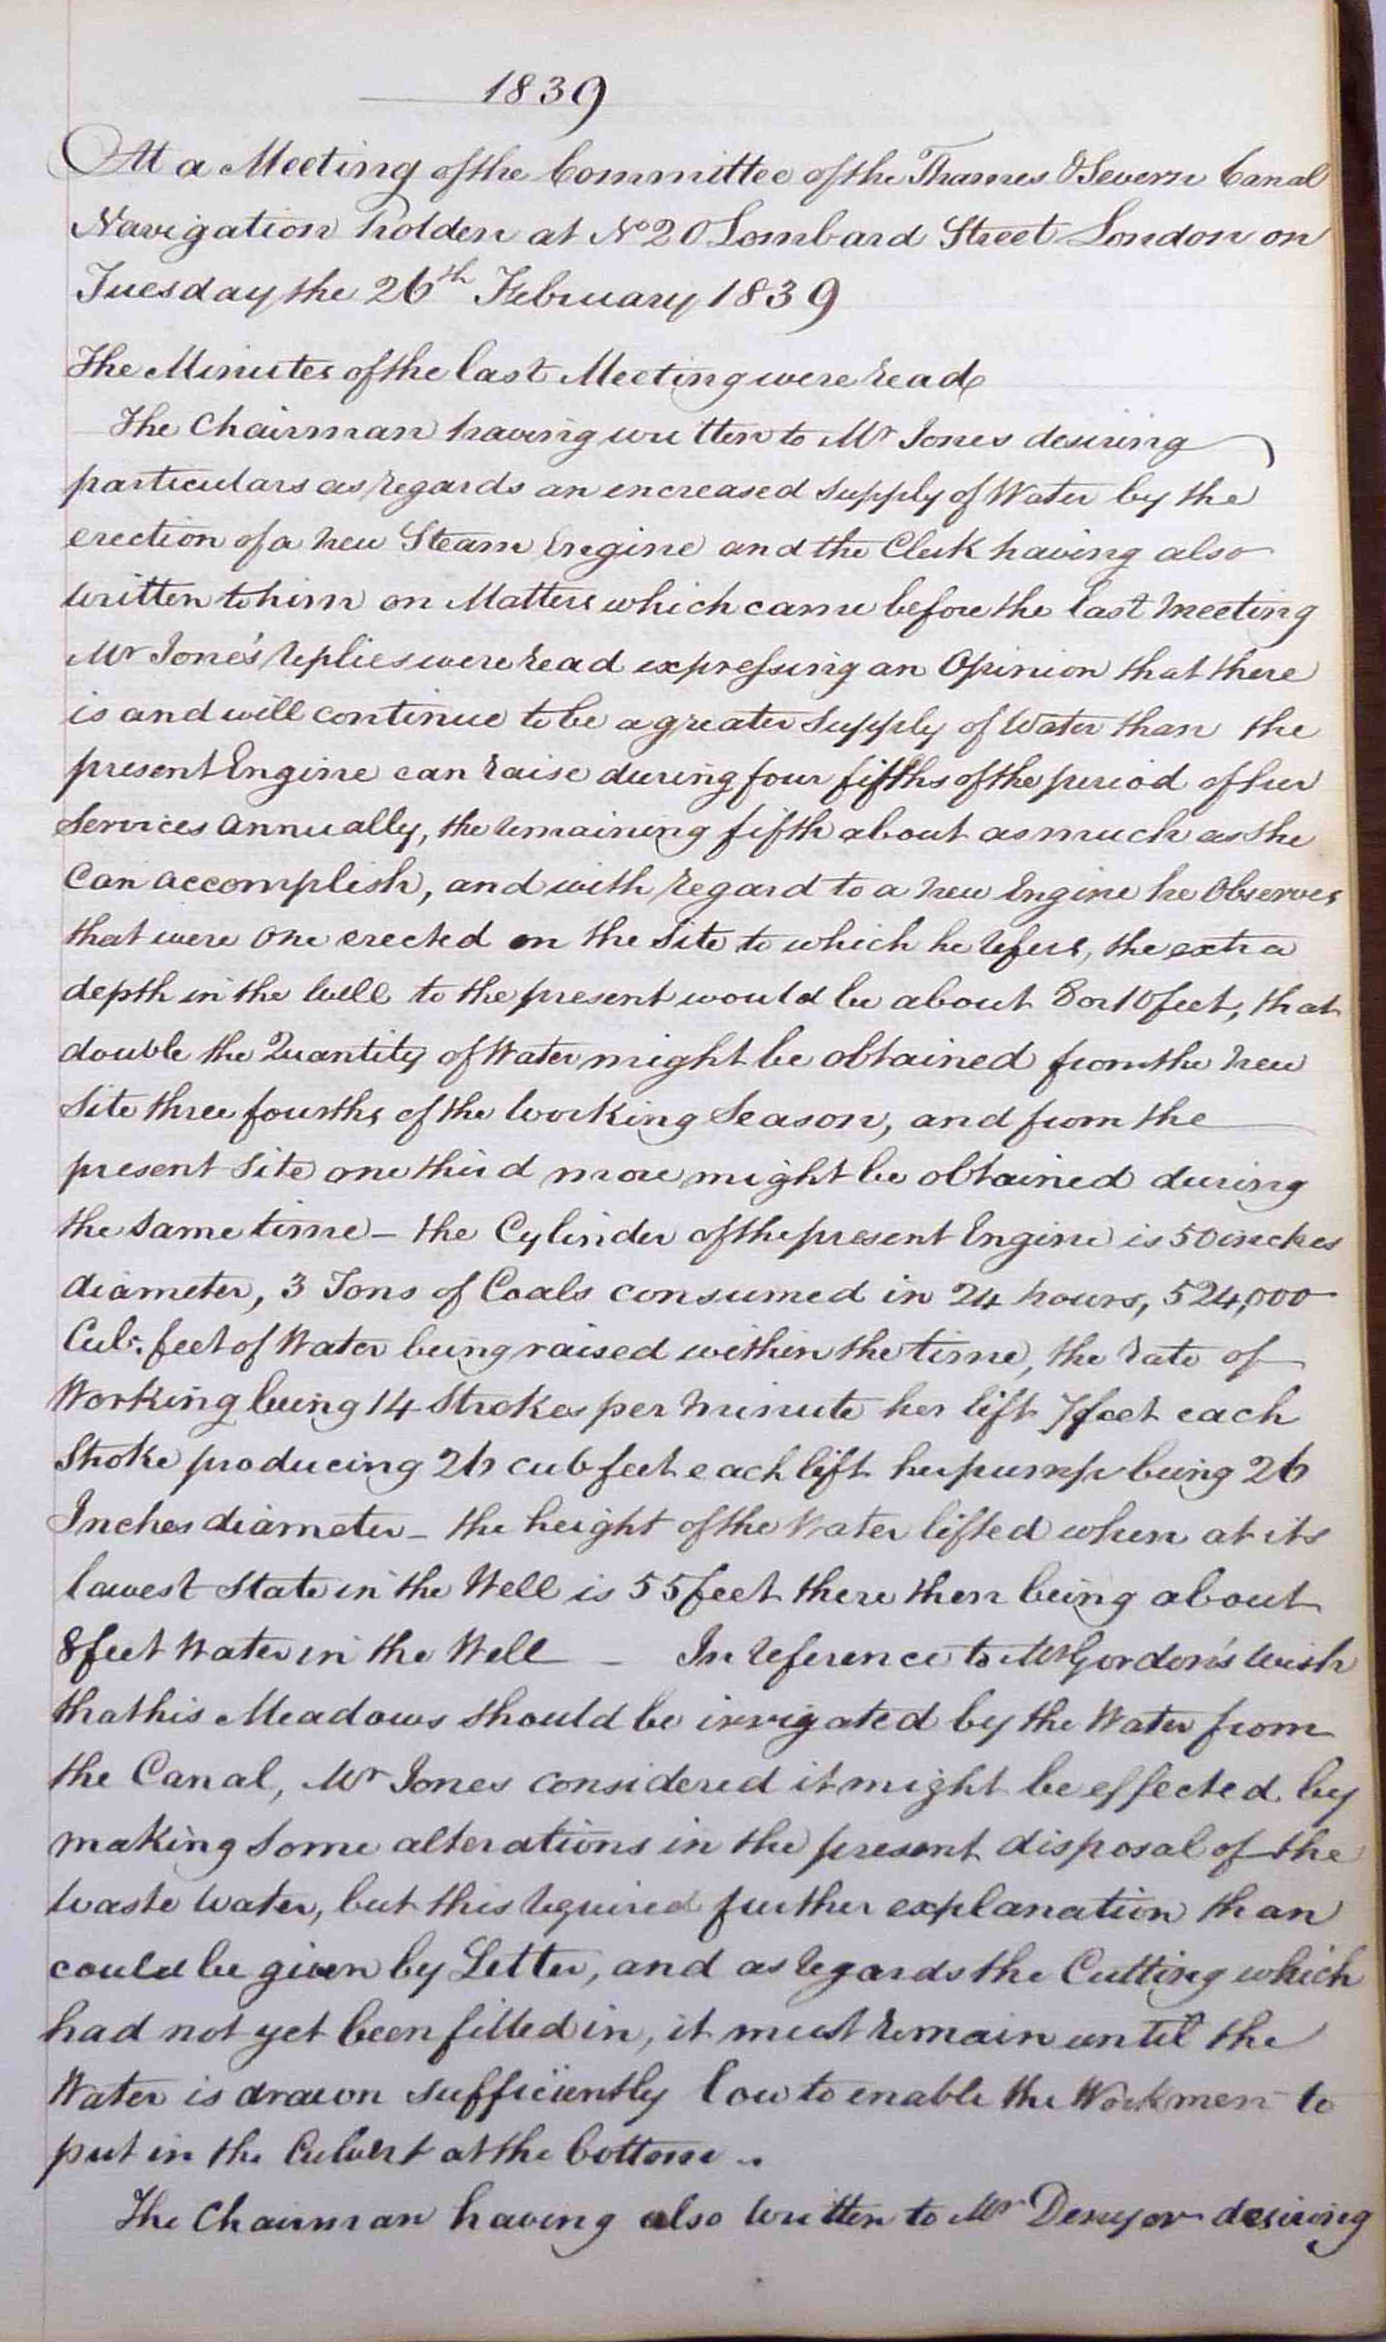 1839
At a Meeting of the Committee of the Thames & Severn Canal
Navigation holden at No 20 Lombard Street London on
Tuesday the 26th February 1839
The Minutes of the last Meeting were read
The Chairman having written to Mr Jones desiring
particulars as regards an encreased supply of Water by the
erection of a new Steam Engine and the Clerk having also
written to him on Matters which came before the last Meeting
Mr Jones's replies were read expressing an Opinion that there
is and will continue to be a greater supply of Water than the
present Engine can raise during four fifths of the period of her
Services annually, the remaining fifth about as much as she
can accomplish, and with regard to a new Engine he Observes
that were one erected on the Site to which he refers, the extra
depth in the Well to the present would be about 8 or 10 feet, that
double the Quantity of Water might be obtained from the new
Site three fourths of the Working Season, and from the
present Site one third more might be obtained during
the same time – the Cylinder of the present Engine is 50 inches
diameter, 3 Tons of Coals consumed in 24 hours, 524,000
Cub. feet of Water being raised within the time, the rate of
Working being 14 Strokes per Minute her lift 7 feet each
Stroke producing 26 cub feet each lift her pump being 26
Inches diameter – the height of the Water lifted when at its
lowest State in the Well is 55 feet there then being about
8 feet Water in the Well – In reference to Mr Gordon's wish
that his Meadows should be irrigated by the Water from
the Canal, Mr Jones considered it might be effected by
making some alterations in the present disposal of the
waste water, but this required further explanation than
could be given by Letter, and as regards the Cutting which
had not yet been filled in, it must remain until the
Water is drawn sufficiently low to enable the Workmen to
put in the Culvert at the bottom.
The Chairman having also written to Mr Denyer desiring